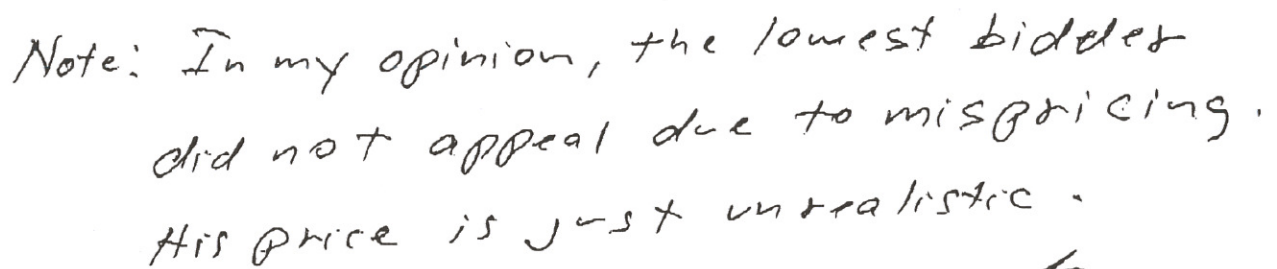 Note: In my opinion, the lowest bidder
did not appeal due to mispricing.
His price is just unrealistic.